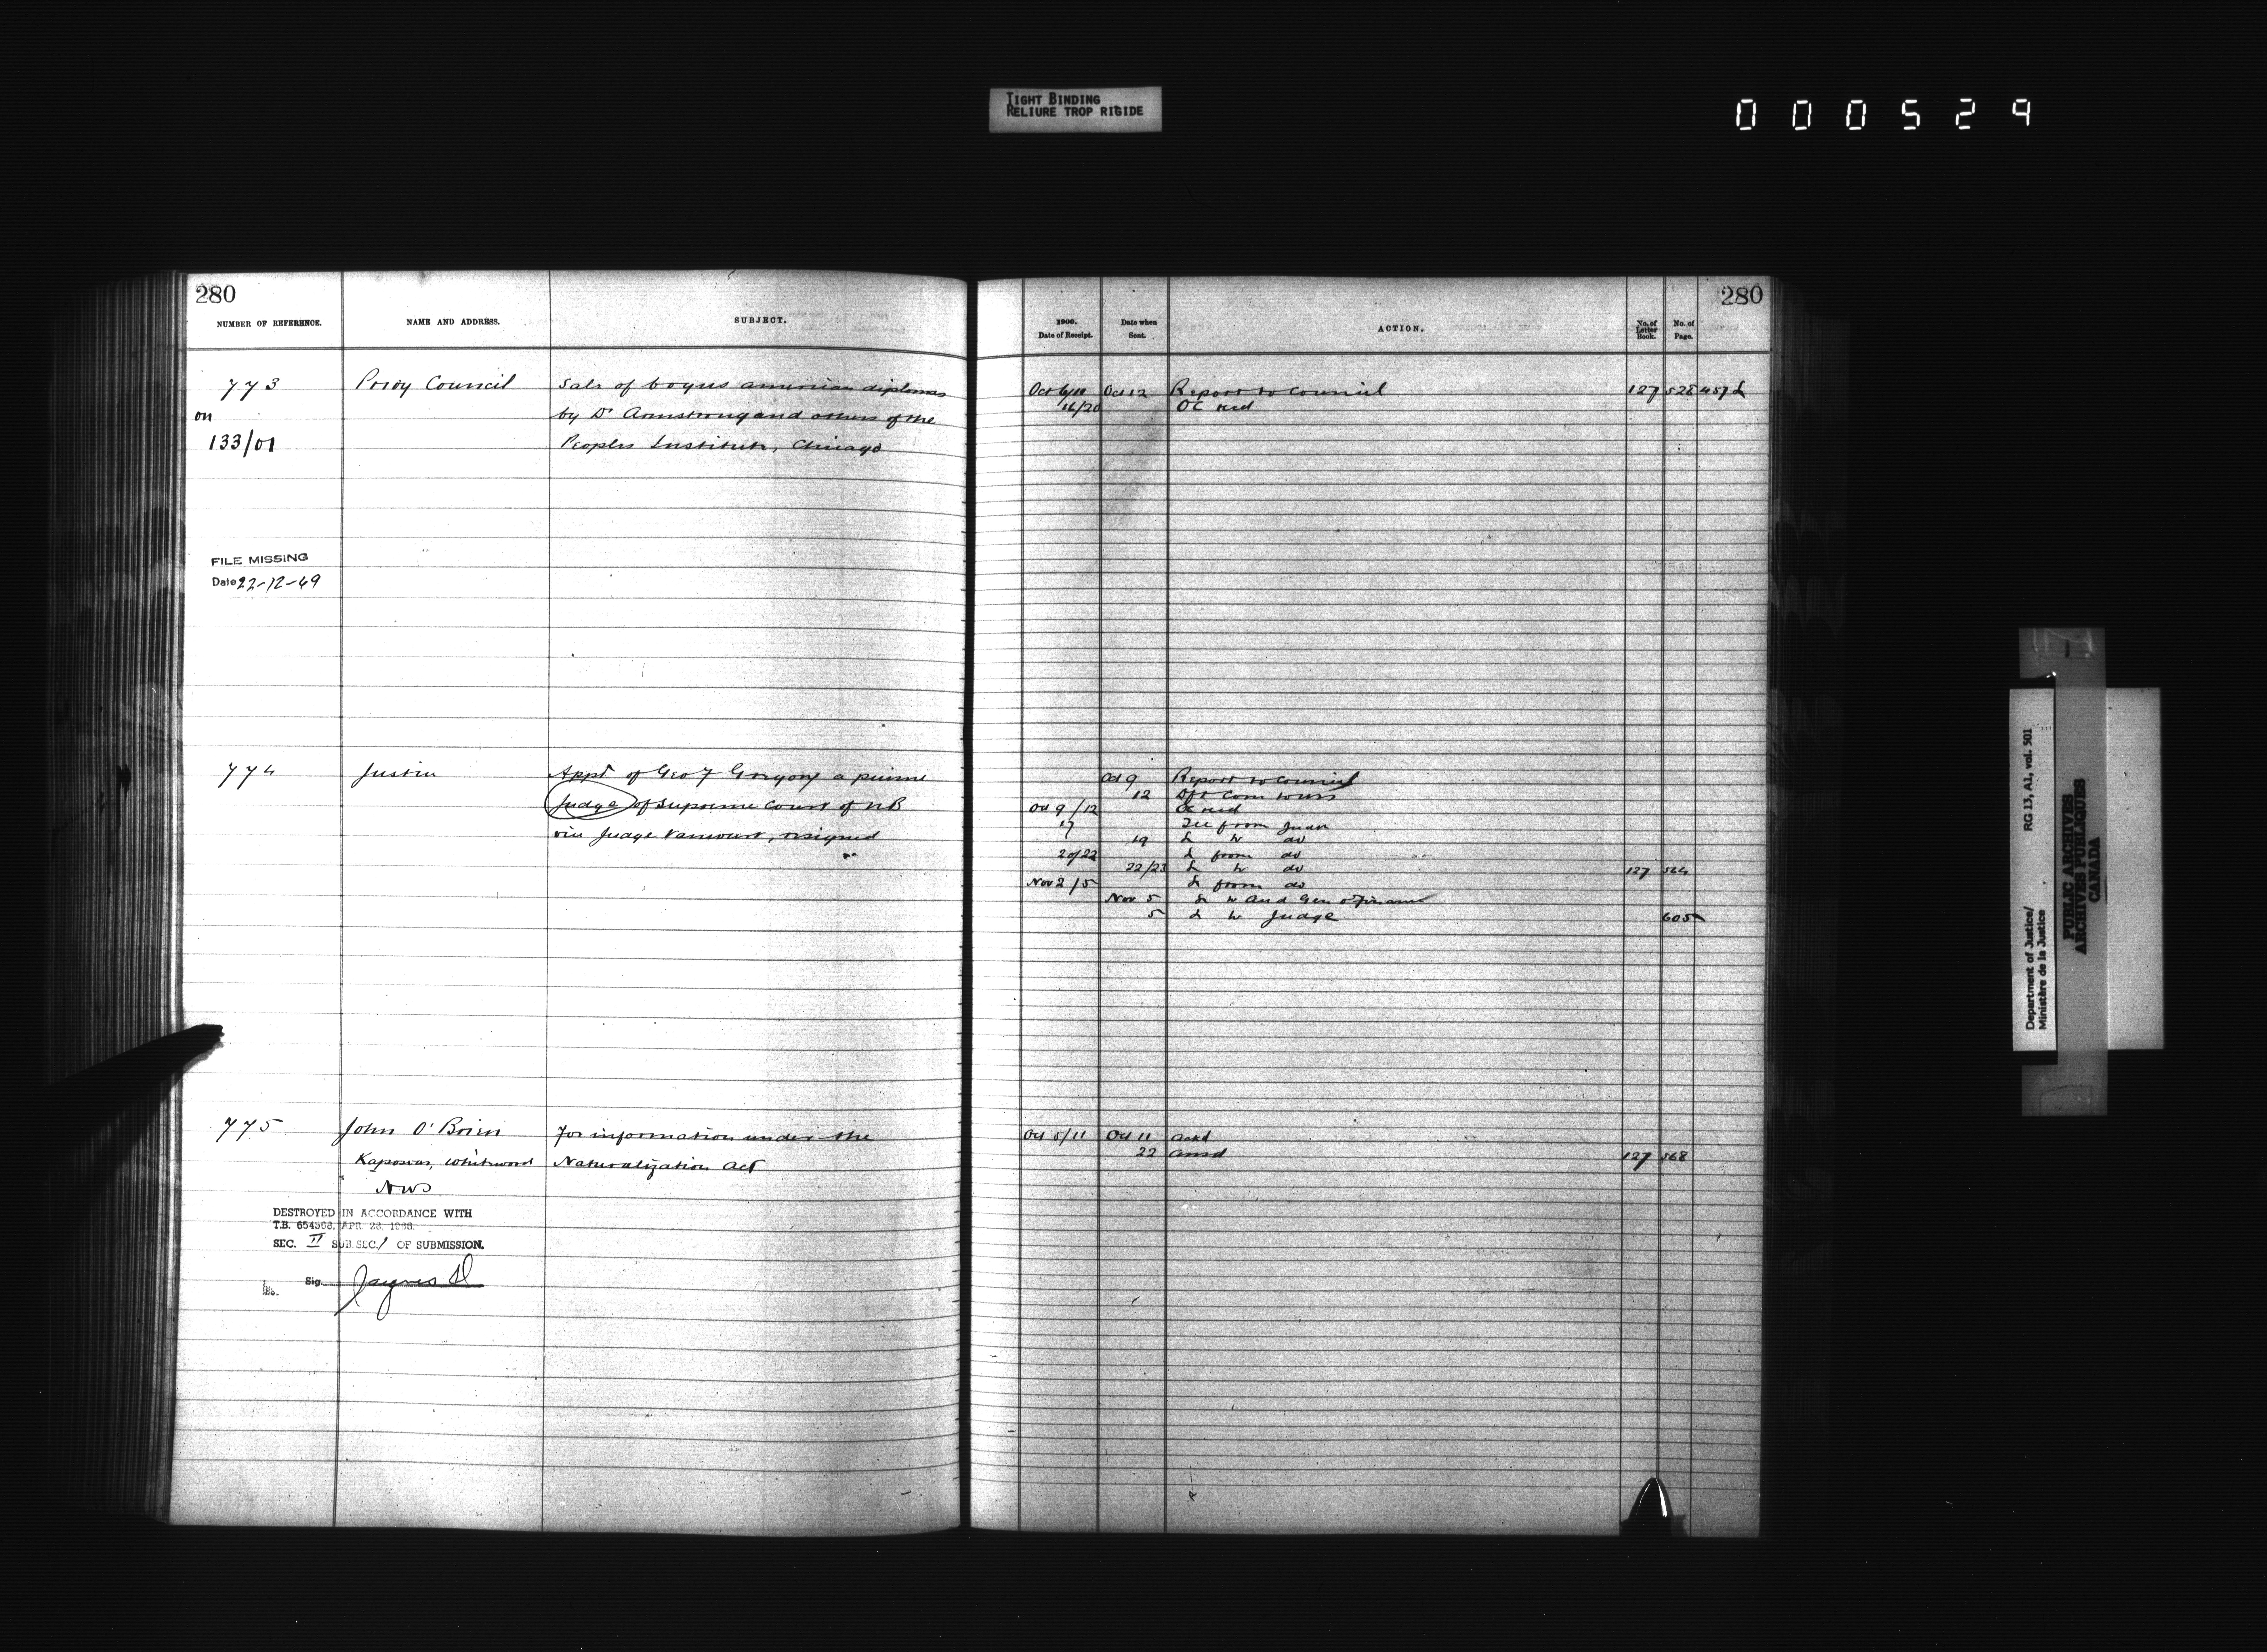 TIGHT BINDING
RELIURE TROP RIGIDE
000529
280
NUMBER OF REFERENCE.
NAME AND ADDRESS.
SUBJECT.
773
on
133/01
Privy Council
Sale of bogus american diplomas
by Dr Armstrong and others of the
Peoples Institute, Chicago
FILE MISSING
Date 22-12-49
774
Justice
Appt of Geo F Gregory a puisne
Judge of Supreme Court of NB
vice Judge Vanwart, resigned
775
John O'Brien
Kaposvar, Whitewood
NWS
For information under the
Naturalization Act
DESTROYED IN ACCORDANCE WITH
T.B. 654563, APR 28 1966.
SEC. II SUB.SEC. 1 OF SUBMISSION.
Sig.
280
1900.
Date of Receipt.
Date when
Sent.
ACTION.
No. of
Letter
Book.
No. of
Page.
Oct 6/11 Oct 12 Report to Council 127 528
16/20 OC recd
Oct 9 Report to Council
12
Oct 9/12 OC recd
17 Tel from Judge
19 L to do
20/22 L from do
22/23 L to do 127 564
Nov 2/5 L from do
Nov 5 L to Aud Gen & Finance
5 L to Judge 605
Oct 5/11 Oct 11 Ackd
22 Ansd 127 568
Department of Justice/
Ministère de la Justice
RG 13, A1, vol. 501
PUBLIC ARCHIVES
ARCHIVES PUBLIQUES
CANADA